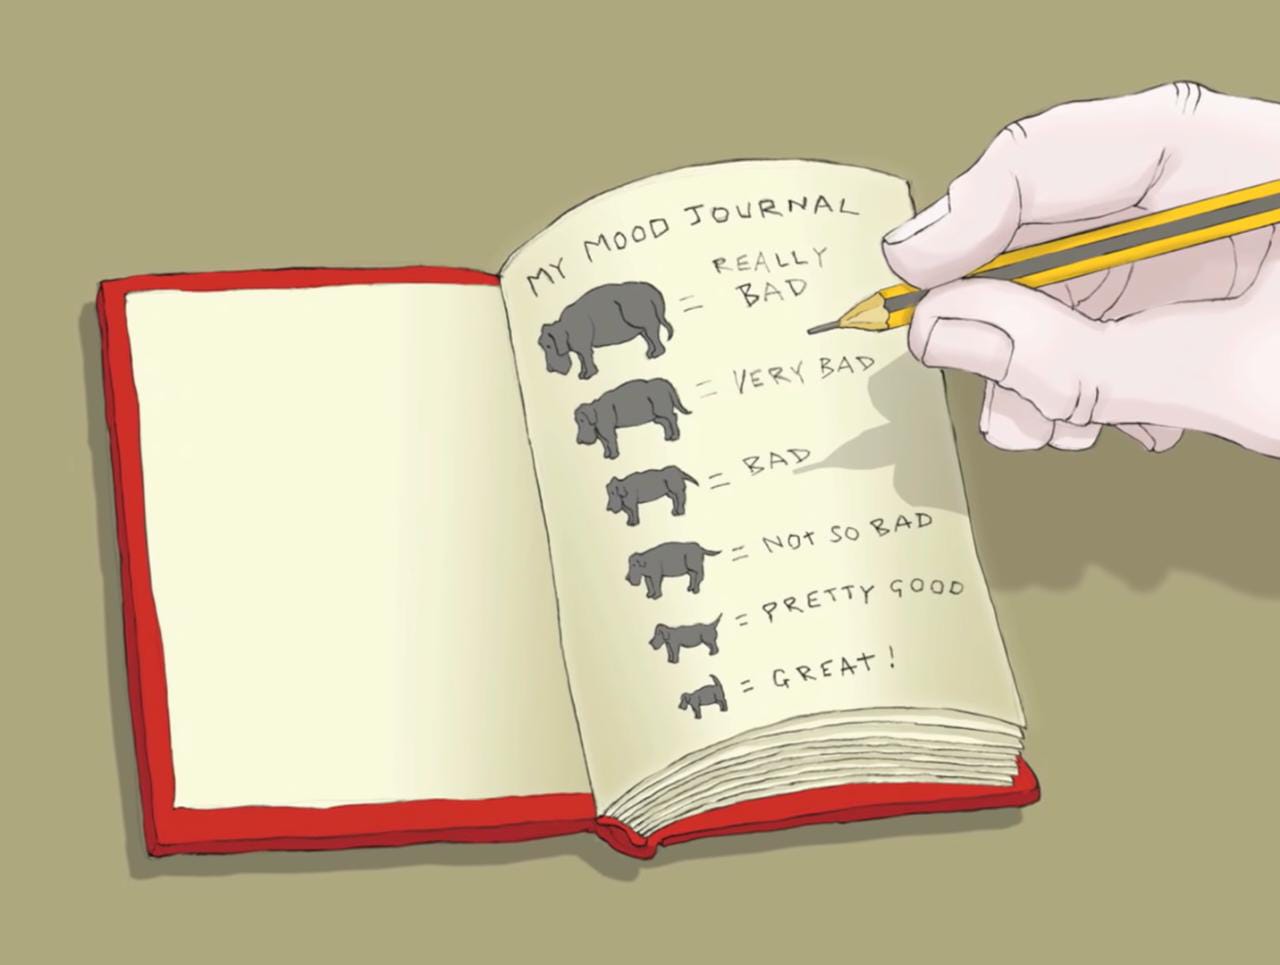 MY MOOD JOURNAL
= REALLY
BAD
= VERY BAD
= BAD
= NOt SO BAD
= PRETTY GOOD
= GREAt!